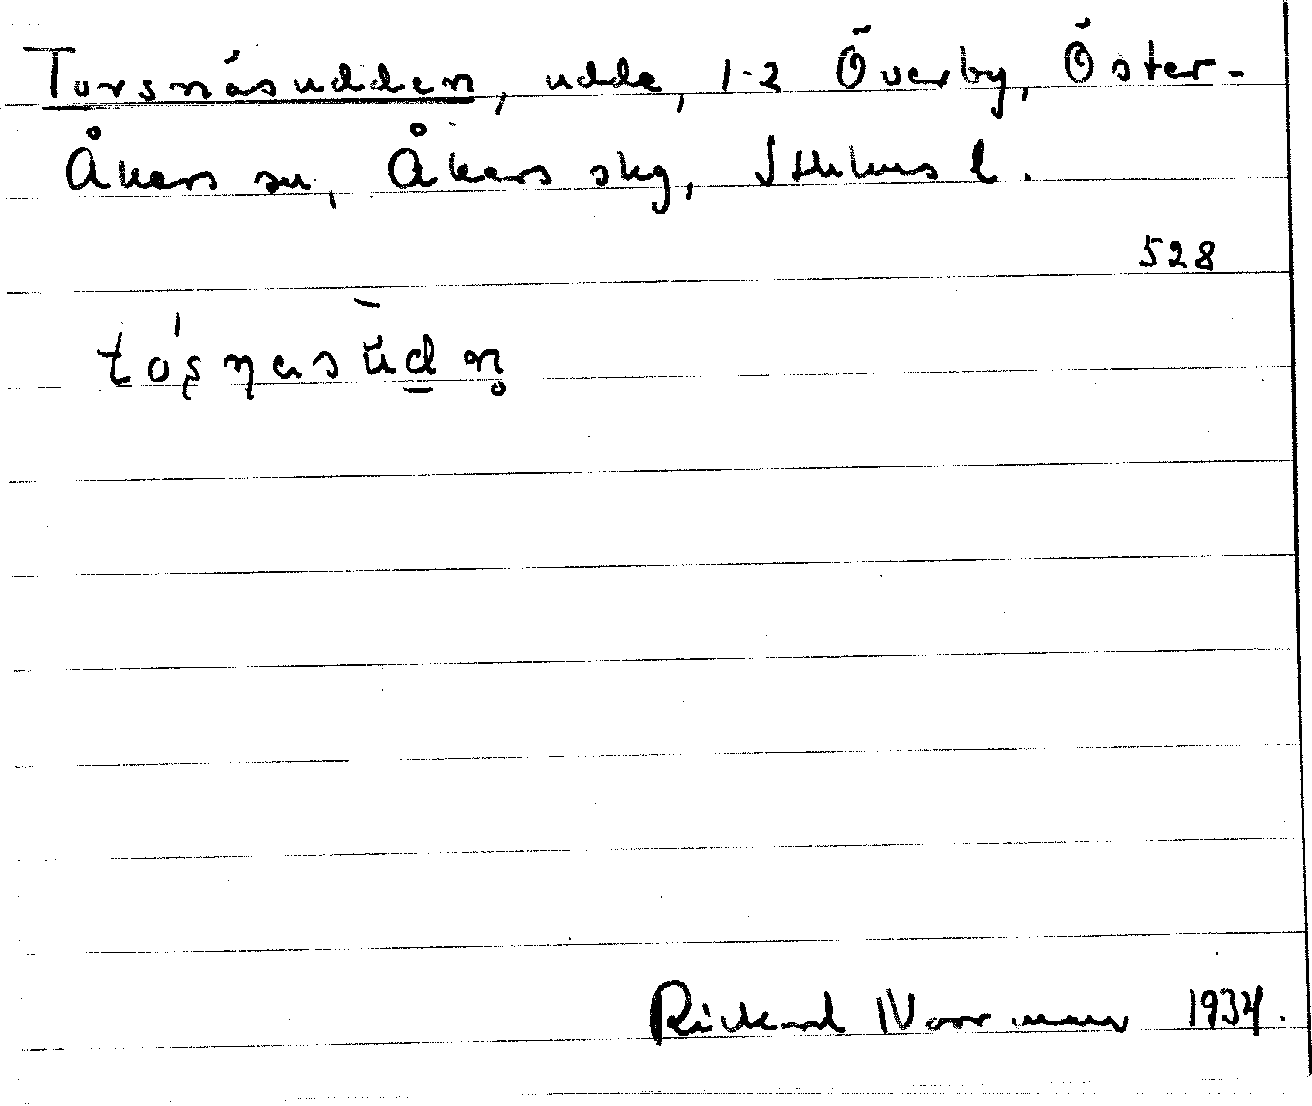 Torsnäsudden, udde, 1-2 Överby, Öster-
Åkers sn, Åkers skg, Sthlms l.
528
Rickard Norrman 1934.